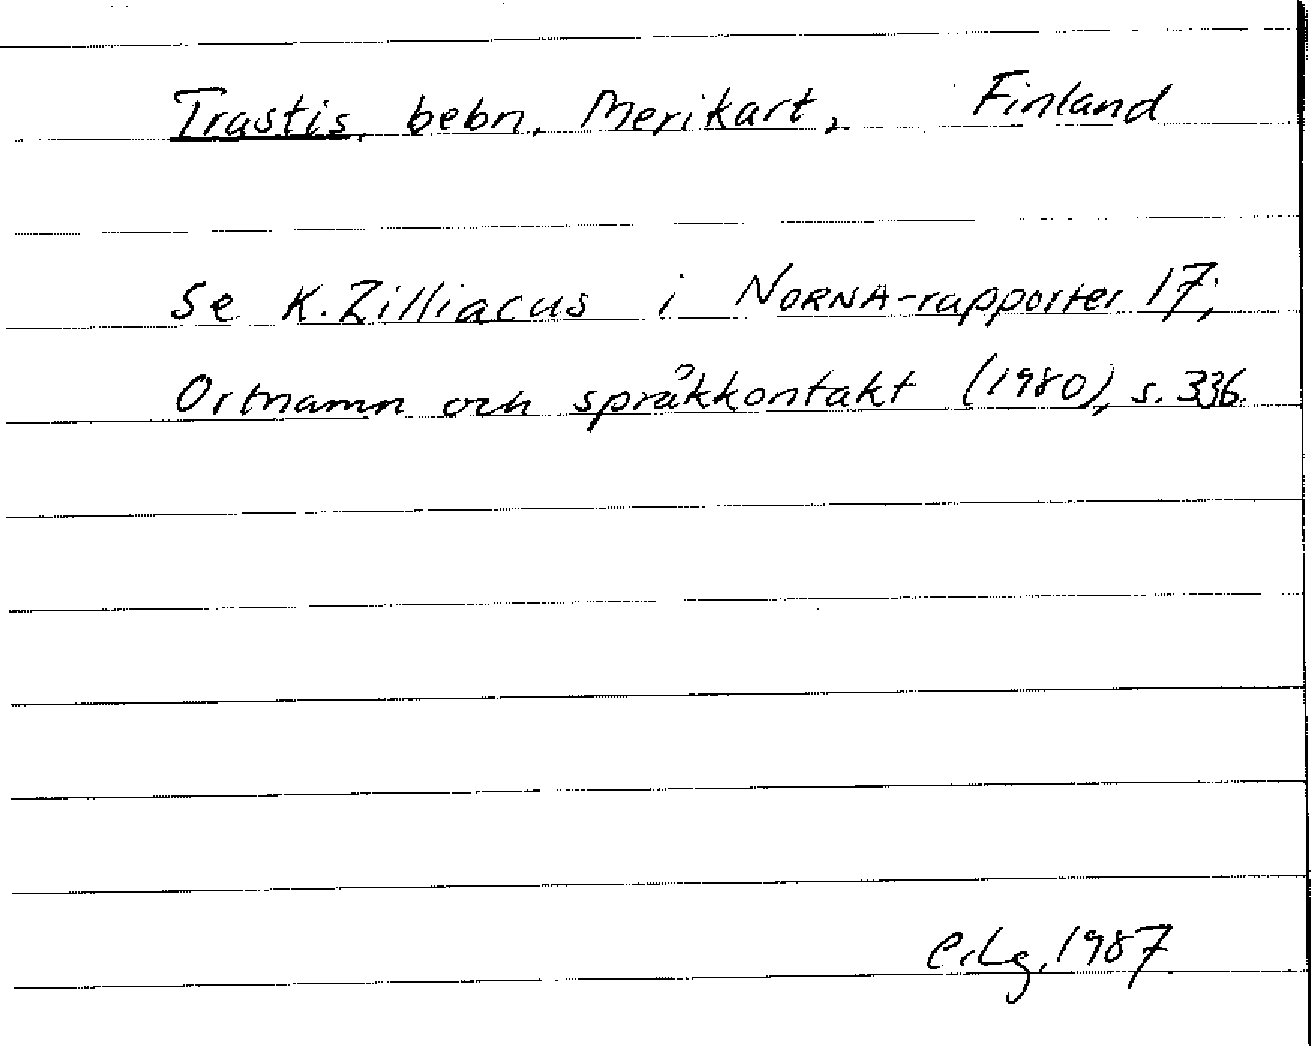 Trastis, bebn, Merikart, Finland
Se K. Zilliacus i NORNA-rapporter 17;
Ortnamn och språkkontakt (1980), s. 336.
C.Lg, 1987